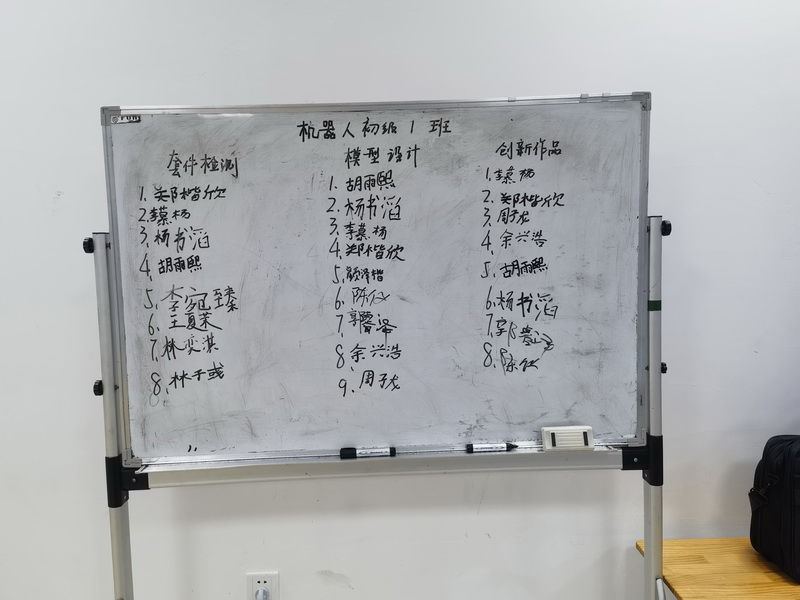 机器人初级1班
套件检测
1.郑楷欣
2.李慕杨
3.杨书滔
4.胡雨熙
5.李宛臻
6.王夏茉
7.林奕淇
8.林子彧
模型设计
1.胡雨熙
2.杨书滔
3.李慕杨
4.郑楷欣
5.
6.陈仪
7.郭
8.余兴浩
9.周子龙
创新作品
1.李慕杨
2.郑楷欣
3.周子龙
4.余兴浩
5.胡雨熙
6.杨书滔
7.郭
8.陈仪